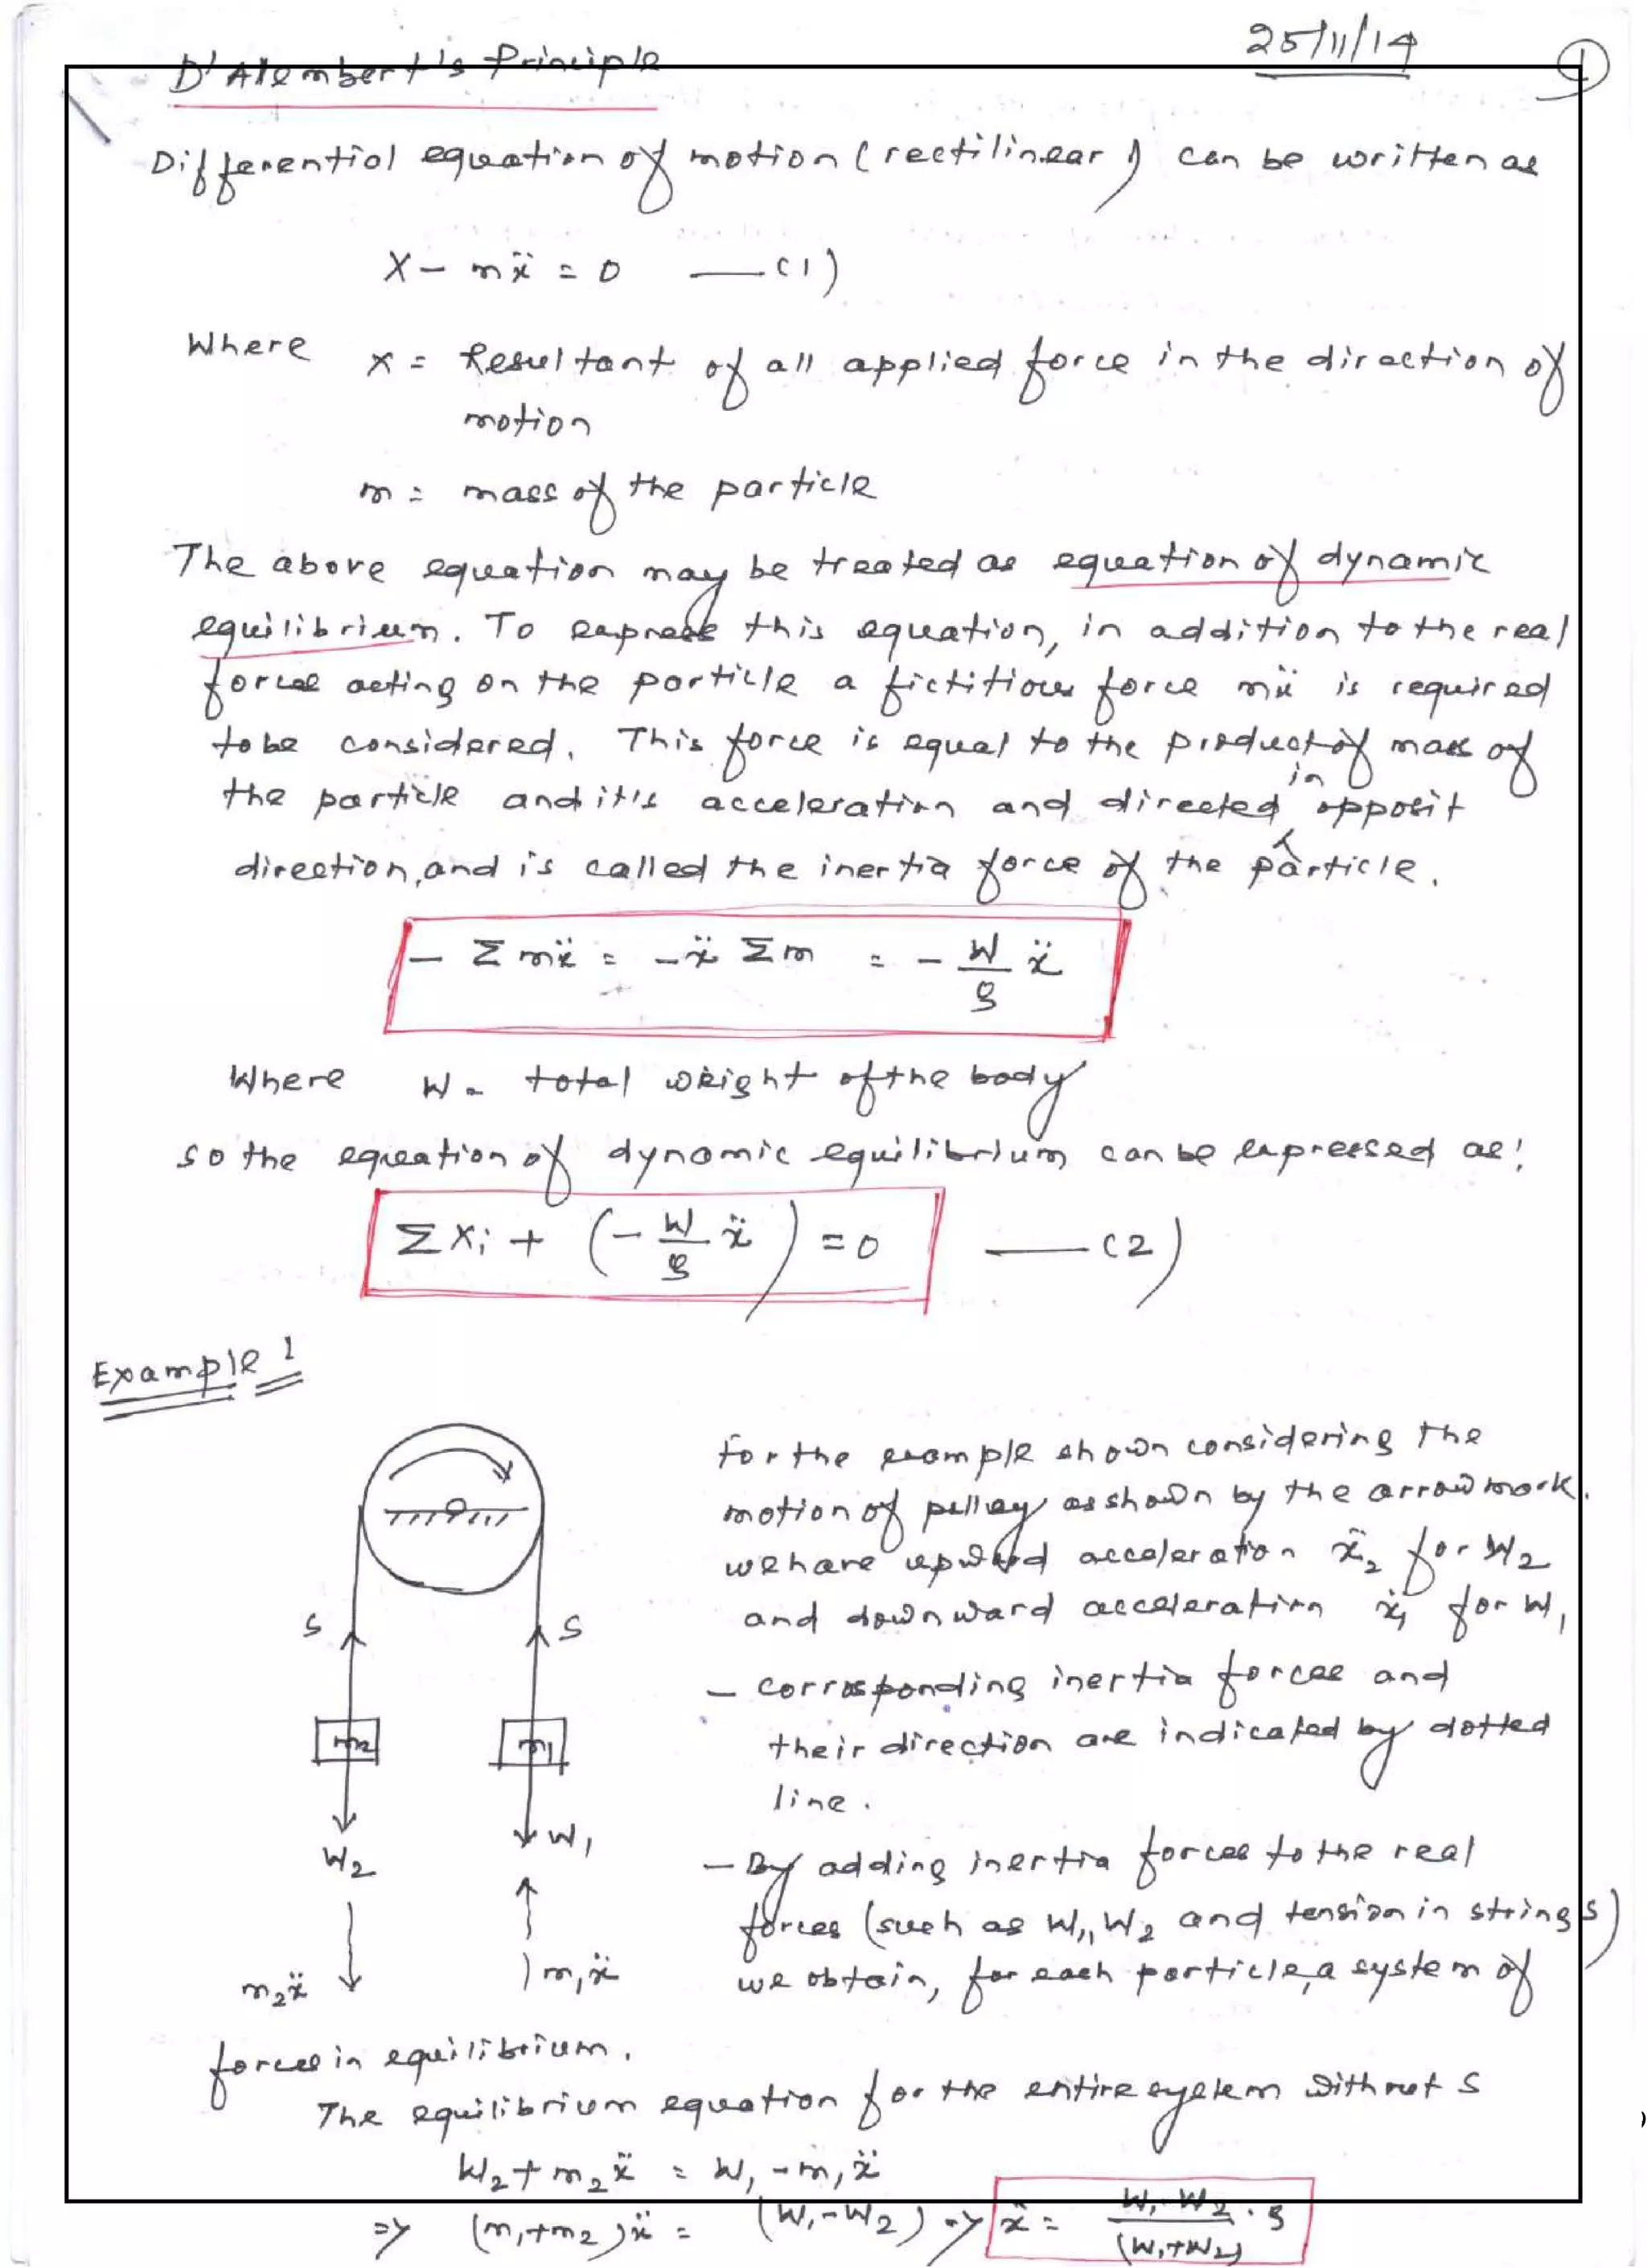 25/11/14 ①
D'Alembert's Principle
Differential equation of motion (rectilinear) can be written as
X - mẍ = 0 —(1)
Where X = Resultant of all applied force in the direction of
motion
m = mass of the particle
The above equation may be treated as equation of dynamic
equilibrium. To express this equation, in addition to the real
forces acting on the particle a fictitious force mẍ is required
to be considered. This force is equal to the product of mass of
the particle and it's acceleration and directed in opposit
direction, and is called the inertia force of the particle.
- Σ mẍ = -ẍ Σm = - W/g ẍ
Where W = total weight of the body
so the equation of dynamic equilibrium can be expressed as:
ΣXi + (- W/g ẍ) = 0 —(2)
Example 1
For the example shown considering the
motion of pulley as shown by the arrow mark.
we have upward acceleration ẍ₂ for W₂
and downward acceleration ẍ₁ for W₁
- corresponding inertia forces and
their direction are indicated by dotted
line.
- By adding inertia forces to the real
forces (such as W₁, W₂ and tension in strings)
we obtain, for each particle, a system of
S S
m2 m1
W₂ W₁
m₂ẍ m₁ẍ
forces in equilibrium.
The equilibrium equation for the entire system without S
W₂ + m₂ẍ = W₁ - m₁ẍ
=> (m₁+m₂)ẍ = (W₁-W₂) => ẍ = W₁-W₂/(W₁+W₂) . g